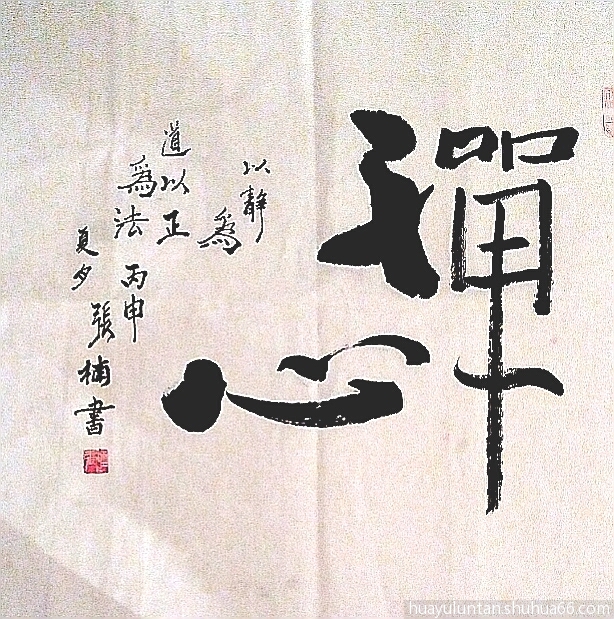 禪心
以靜
為
道以正
為法丙申
夏夕張楠書
huayuluntan.shuhua66.com